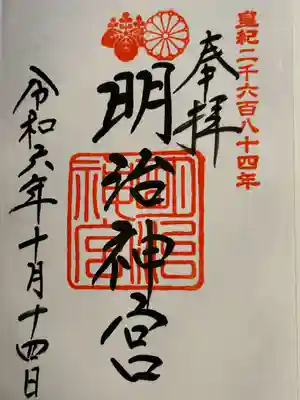 皇紀二千六百八十四年
奉拝
明治神宮
明治神宮
令和六年十月十四日